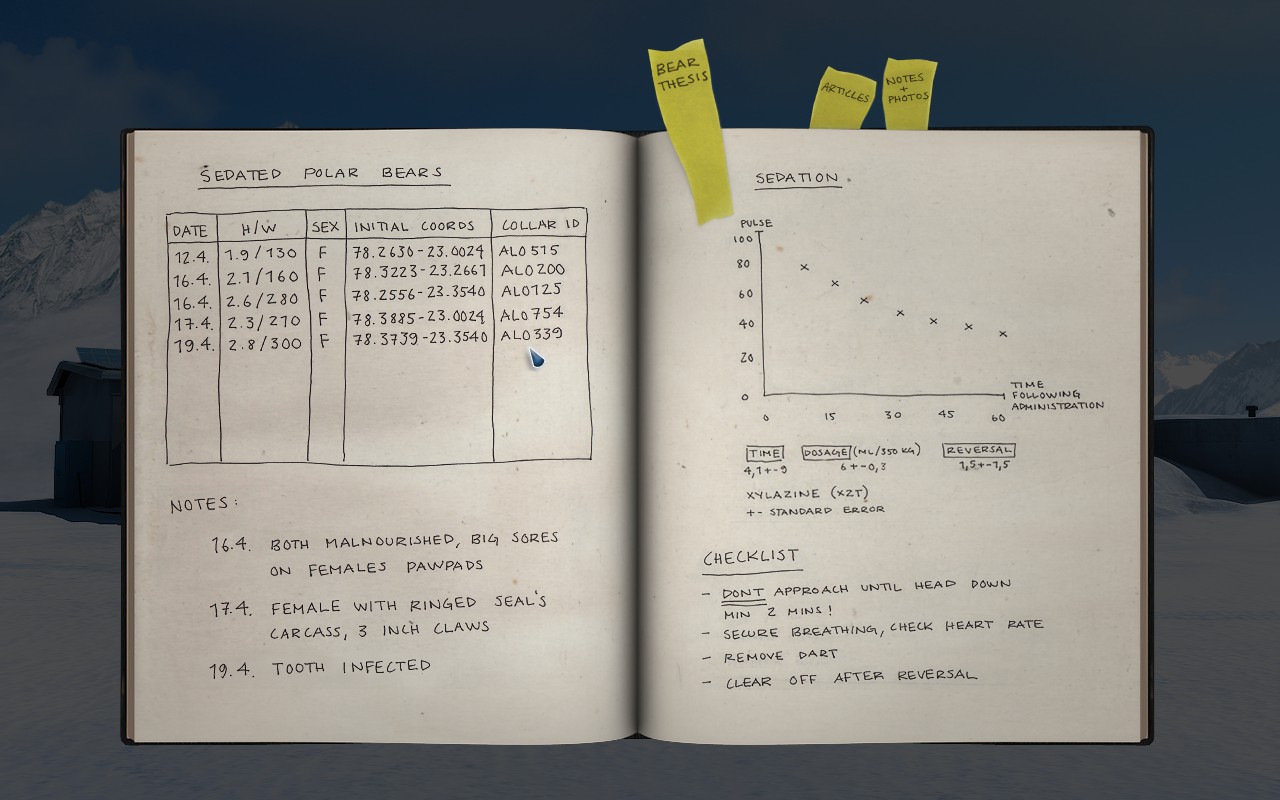 BEAR
THESIS
ARTICLES
NOTES
+
PHOTOS
SEDATED POLAR BEARS
DATE H/W SEX INITIAL COORDS COLLAR ID
12.4. 1.9/130 F 78.2630-23.0024 ALO515
16.4. 2.1/160 F 78.3223-23.2661 ALO200
16.4. 2.6/280 F 78.2556-23.3540 ALO725
17.4. 2.3/270 F 78.3885-23.0024 ALO754
19.4. 2.8/300 F 78.3739-23.3540 ALO339
NOTES:
16.4. BOTH MALNOURISHED, BIG SORES
ON FEMALES PAWPADS
17.4. FEMALE WITH RINGED SEAL'S
CARCASS, 3 INCH CLAWS
19.4. TOOTH INFECTED
SEDATION.
PULSE
100
80
60
40
20
0
0 15 30 45 60
TIME
FOLLOWING
ADMINISTRATION
TIME DOSAGE (ML/350 KG) REVERSAL
4,1+-9 6+-0,3 1,5+-1,5
XYLAZINE (XZT)
+- STANDARD ERROR
CHECKLIST
- DONT APPROACH UNTIL HEAD DOWN
MIN 2 MINS!
- SECURE BREATHING, CHECK HEART RATE
- REMOVE DART
- CLEAR OFF AFTER REVERSAL